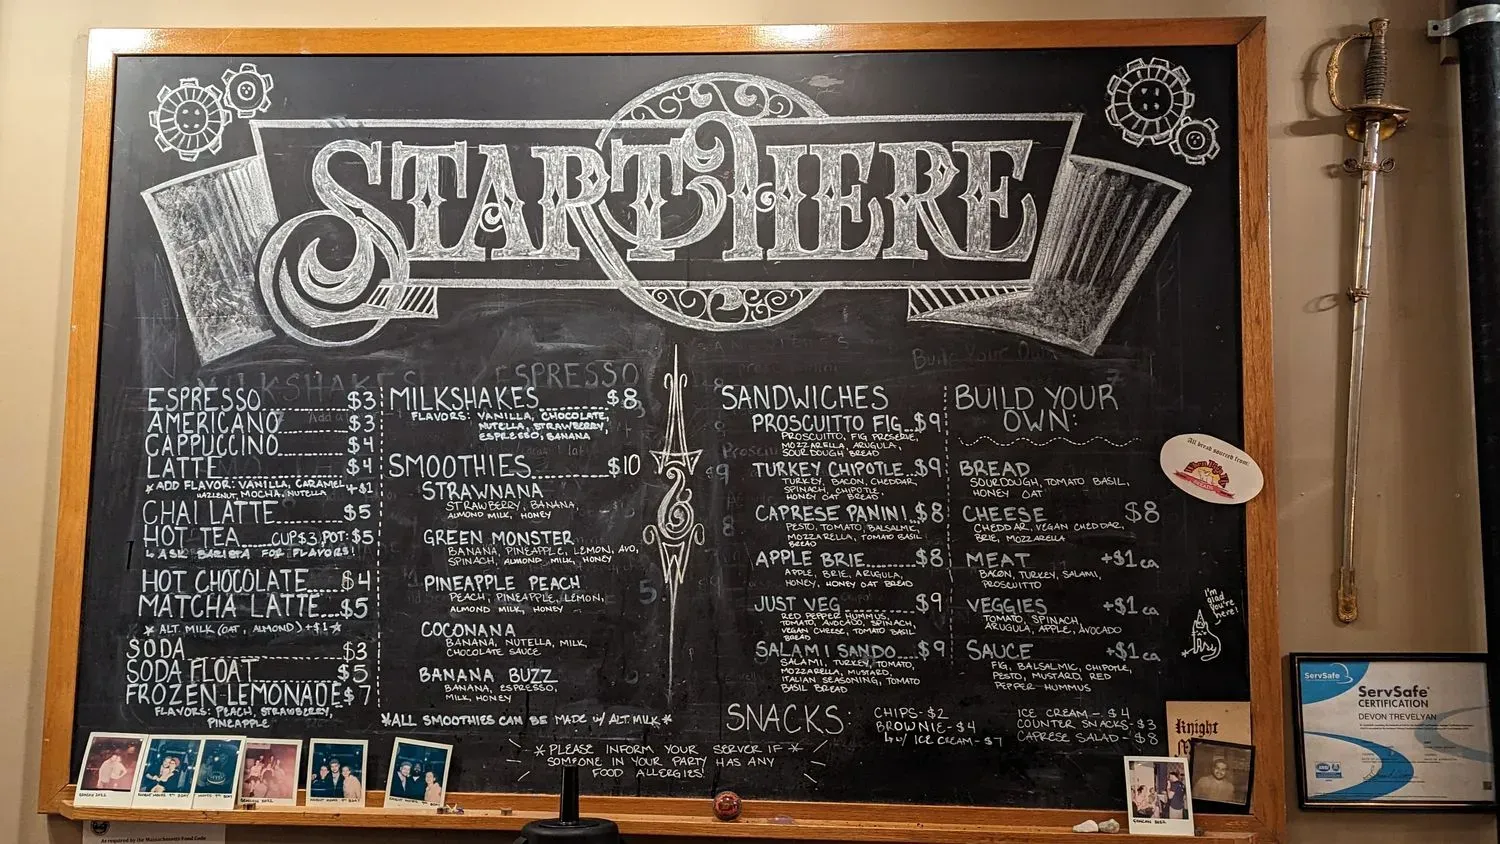 START HERE
ESPRESSO $3
AMERICANO $3
CAPPUCCINO $4
LATTE $4
*ADD FLAVOR: VANILLA, CARAMEL,
HAZLENUT, MOCHA, NUTELLA +$1
CHAI LATTE $5
HOT TEA CUP $3 POT: $5
ASK BARISTA FOR FLAVORS!
HOT CHOCOLATE $4
MATCHA LATTE $5
* ALT. MILK (OAT, ALMOND) +$1 *
SODA $3
SODA FLOAT $5
FROZEN LEMONADE $7
FLAVORS: PEACH, STRAWBERRY,
PINEAPPLE
MILKSHAKES $8
FLAVORS: VANILLA, CHOCOLATE,
NUTELLA, STRAWBERRY,
ESPRESSO, BANANA
SMOOTHIES $10
STRAWNANA
STRAWBERRY, BANANA,
ALMOND MILK, HONEY
GREEN MONSTER
BANANA, PINEAPPLE, LEMON, AVO,
SPINACH, ALMOND MILK, HONEY
PINEAPPLE PEACH
PEACH, PINEAPPLE, LEMON,
ALMOND MILK, HONEY
COCONANA
BANANA, NUTELLA, MILK,
CHOCOLATE SAUCE
BANANA BUZZ
BANANA, ESPRESSO,
MILK, HONEY
*ALL SMOOTHIES CAN BE MADE W/ ALT. MILK*
SANDWICHES
PROSCUITTO FIG $9
PROSCUITTO, FIG PRESERVE,
MOZZARELLA, ARUGULA,
SOURDOUGH BREAD
TURKEY CHIPOTLE $9
TURKEY, BACON, CHEDDAR,
SPINACH, CHIPOTLE,
HONEY OAT BREAD
CAPRESE PANINI $8
PESTO, TOMATO, BALSALMIC,
MOZZARELLA, TOMATO BASIL
BREAD
APPLE BRIE $8
APPLE, BRIE, ARUGULA,
HONEY, HONEY OAT BREAD
JUST VEG $9
RED PEPPER HUMMUS,
TOMATO, AVOCADO, SPINACH,
VEGAN CHEESE, TOMATO BASIL
BREAD
SALAMI SANDO $9
SALAMI, TURKEY, TOMATO,
MOZZARELLA, MUSTARD,
ITALIAN SEASONING, TOMATO
BASIL BREAD
BUILD YOUR
OWN:
BREAD
SOURDOUGH, TOMATO BASIL,
HONEY OAT
CHEESE $8
CHEDDAR, VEGAN CHEDDAR,
BRIE, MOZZARELLA
MEAT +$1 ea
BACON, TURKEY, SALAMI,
PROSCUITTO
VEGGIES +$1 ea
TOMATO, SPINACH,
ARUGULA, APPLE, AVOCADO
SAUCE +$1 ea
FIG, BALSALMIC, CHIPOTLE,
PESTO, MUSTARD, RED
PEPPER HUMMUS
SNACKS:
CHIPS - $2
BROWNIE - $4
W/ ICE CREAM - $7
ICE CREAM - $4
COUNTER SNACKS - $3
CAPRESE SALAD - $8
* PLEASE INFORM YOUR SERVER IF *
SOMEONE IN YOUR PARTY HAS ANY
FOOD ALLERGIES!
All bread sourced from:
I'm
glad
you're
here!
Knight
ServSafe
ServSafe
CERTIFICATION
DEVON TREVELYAN
As required by the Massachusetts Food Code